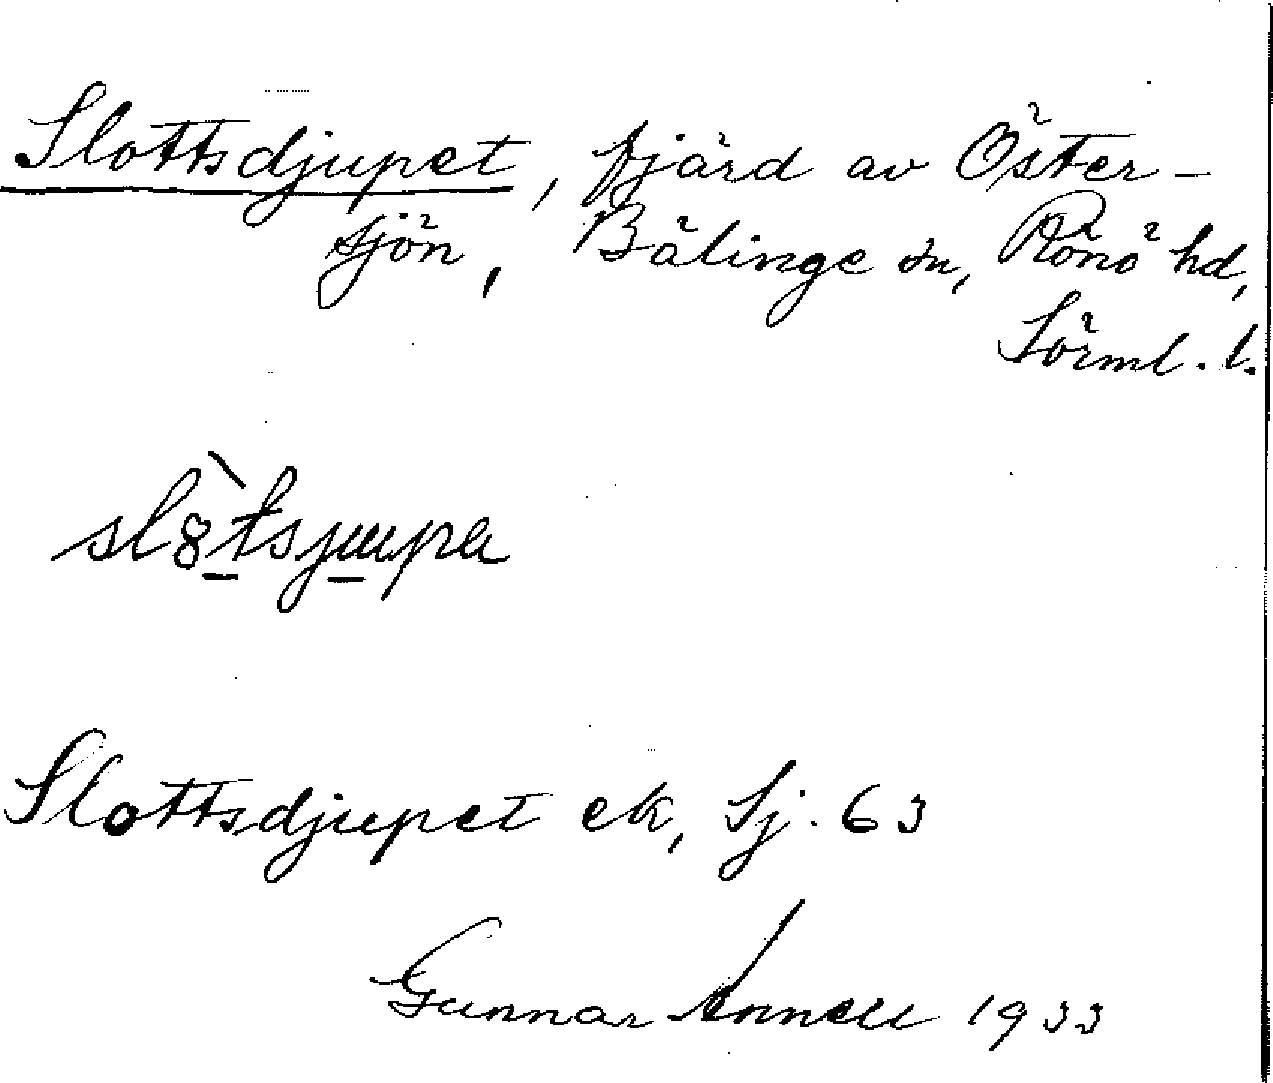 Slottsdjupet, fjärd av Öster-
sjön, Bälinge sn, Rönö hd,
Sörml. l.
slò̱tsju̱pa
Slottsdjupet ek, Sj. 63
Gunnar Annell 1933